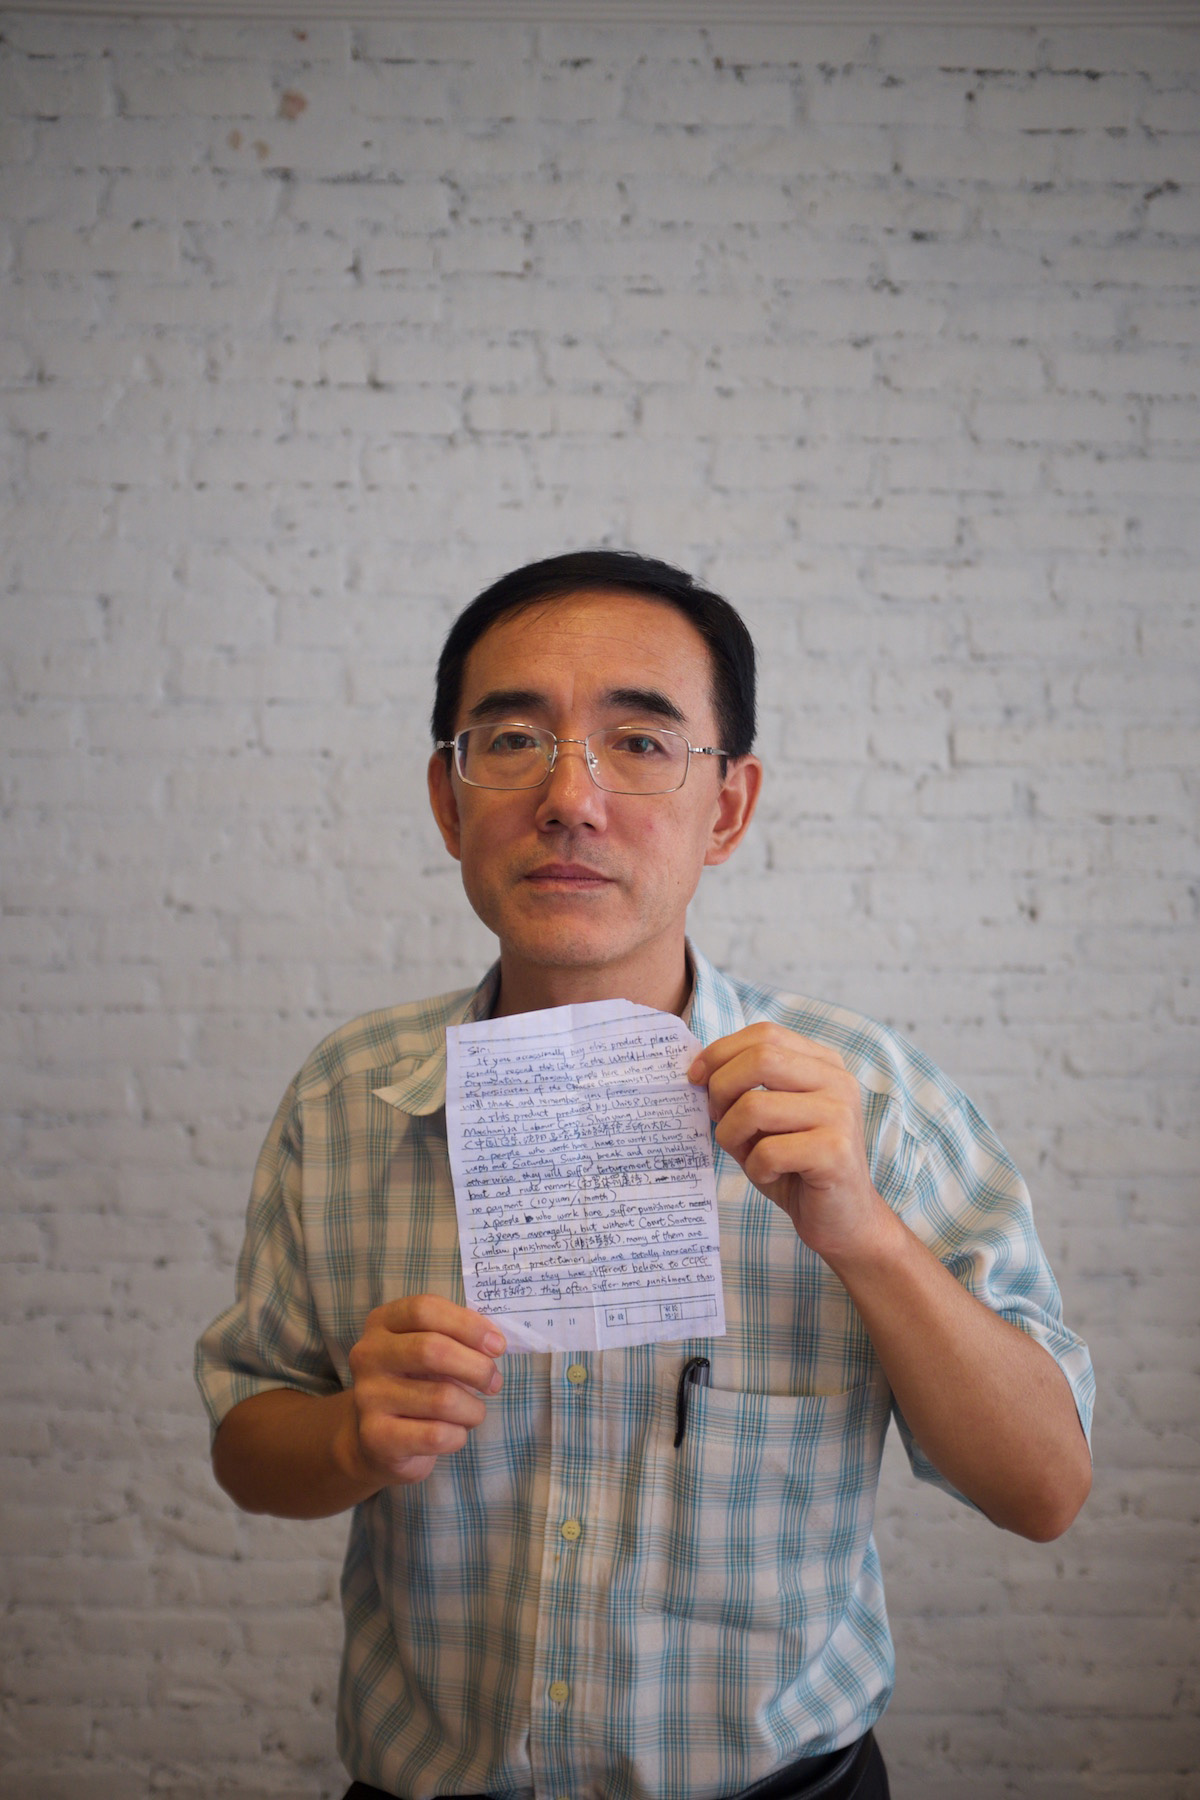 Sir:
If you occassionally buy this product, please
kindly resend this letter to the World Human Right
Organization. Thousands people here who are under
the persicution of the Chinese Communist Party Gover
will thank and remember you forever.
△ This product produced by Unit 8, Department 2,
Masanjia Labour Camp, Shenyang, Liaoning, China
(中国, 辽宁, 沈阳, 马三家
△ people who work here, have to work 15 hours a day
with out Saturday, Sunday break and any holidays,
otherwise, they will suffer torturement
beat and rude remark (打骂体罚虐待), nearly
no payment (10 yuan / 1 month)
△ people who work here, suffer punishment nearly
1~3 years averagelly, but without Court Sentence
(unlaw punishment) (非法劳教), many of them are
Falun gong practitioner, who are totally innocent
only because they have different believe to CCPG
they often suffer more punishment than
others.
年 月 日